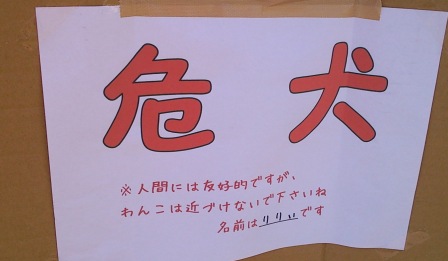 危犬
※人間には友好的ですが、
わんこは近づけないで下さいね
名前はりりぃです